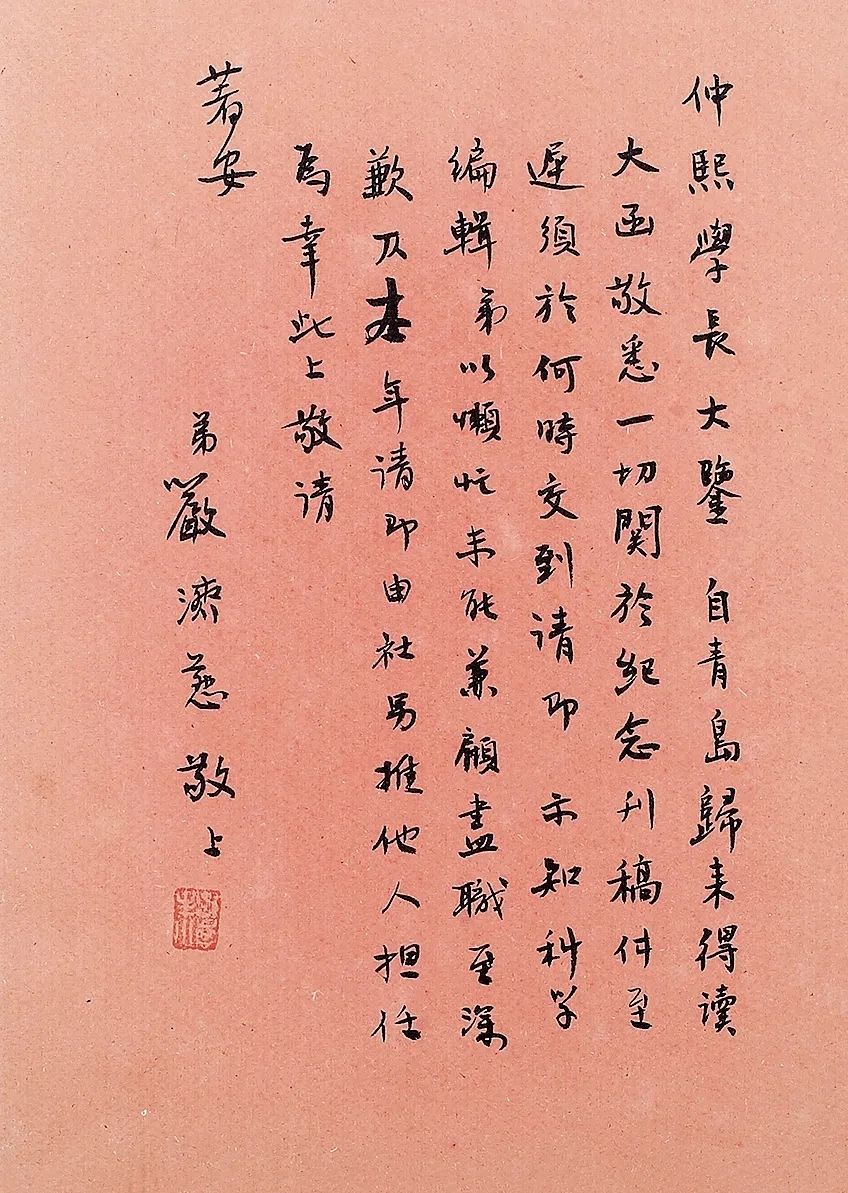 仲熙學長大鑒 自青島歸来得读
大函敬悉一切関於紀念刊稿件至
遲須於何時交到请即 示知科学
编輯弟以懶忙未能兼顧盡職至深
歉仄本年请即由社另推他人担任
為幸此上敬请
著安
弟嚴濟慈敬上